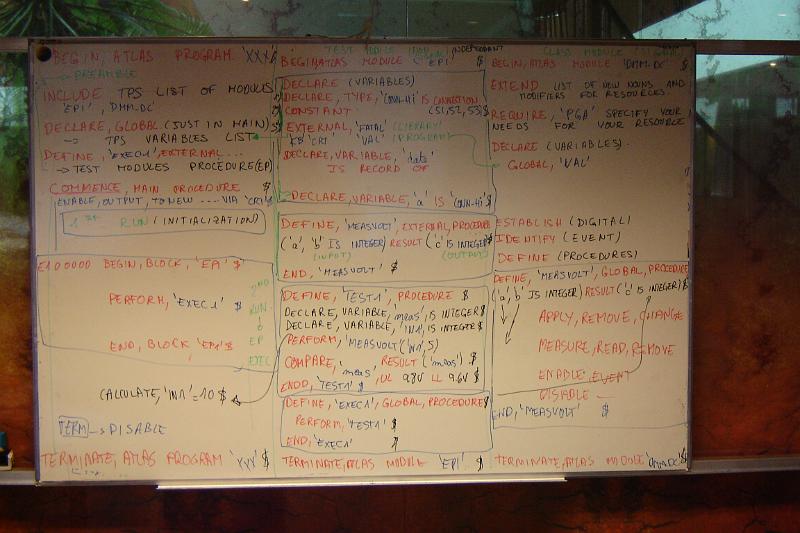 BEGIN, ATLAS PROGRAM 'XXX' $
→ PREAMBLE
INCLUDE TPS LIST OF MODULES
'EPI', DMM.DC'
DECLARE, GLOBAL (JUST IN MAIN)
→ TPS VARIABLES LIST
DEFINE, 'EXEC1', EXTERNAL ...
→ TEST MODULES PROCEDURE (EP)
COMMENCE, MAIN PROCEDURE $
ENABLE, OUTPUT, TO NEW .... VIA 'CRT' $
1ST RUN (INITIALIZATION)
E100000 BEGIN, BLOCK, 'EPI' $
PERFORM, 'EXEC1' $
END, BLOCK 'EPI' $
2ND
RUN
EP
EXEC
CALCULATE, 'IN1' = 10 $
TERM → DISABLE
TERMINATE, ATLAS PROGRAM 'XXX' $
TEST MODULE INDEPENDANT
BEGIN ATLAS MODULE 'EPI' $
DECLARE (VARIABLES)
DECLARE, TYPE, 'CONN-HI' IS CONNECTION
CONSTANT (S1, S2, S3) $
EXTERNAL, 'FATAL' (LIBRARY)
'CRT' 'VAL' (PROGRAM)
DECLARE, VARIABLE, 'data'
IS RECORD OF
DECLARE, VARIABLE, 'a' IS 'CONN-HI' $
DEFINE, 'MEASVOLT', EXTERNAL, PROCEDURE
('a', 'b' IS INTEGER) RESULT ('c' IS INTEGER) $
(INPUT) (OUTPUT)
END, 'MEASVOLT' $
DEFINE, 'TEST1', PROCEDURE $
DECLARE, VARIABLE, 'meas', IS INTEGER $
DECLARE, VARIABLE, 'IN1', IS INTEGER $
PERFORM, 'MEASVOLT' ('IN1', 5)
RESULT ('meas') $
COMPARE, 'meas', UL 9.8V LL 9.6V $
END, 'TEST1' $
DEFINE, 'EXEC1', GLOBAL, PROCEDURE $
PERFORM, 'TEST1' $
END, 'EXEC1' $
TERMINATE, ATLAS MODULE 'EPI' $
CLASS MODULE
BEGIN, ATLAS MODULE 'DMM.DC' $
EXTEND LIST OF NEW NOUNS AND
MODIFIERS FOR RESOURCES.
REQUIRE, 'PGA' SPECIFY YOUR
NEEDS FOR YOUR RESOURCE
DECLARE (VARIABLES).
GLOBAL, 'VAL'
ESTABLISH (DIGITAL)
IDENTIFY (EVENT)
DEFINE (PROCEDURES)
DEFINE, 'MEASVOLT', GLOBAL, PROCEDURE
('a', b IS INTEGER) RESULT ('c' IS INTEGER) $
APPLY, REMOVE, CHANGE
MEASURE, READ, REMOVE
ENABLE, EVENT
DISABLE
END, 'MEASVOLT' $
TERMINATE, ATLAS MODULE 'DMM.DC' $